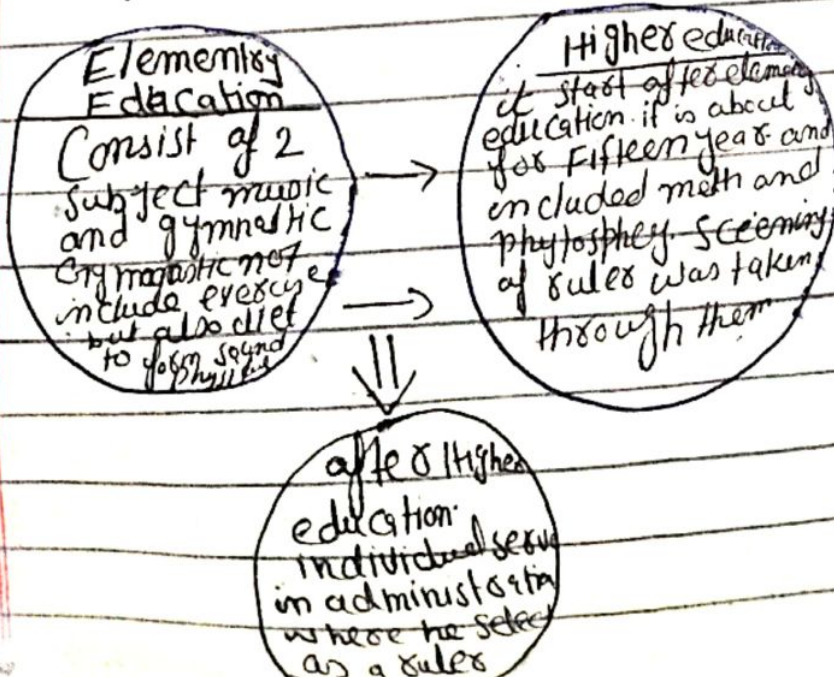 Elementry
Edacation
Consist of 2
subject music
and gymnastic
Gymagastic not
include exercise
but also diet
to form sound
Higher education
it start after elementry
education. it is about
for Fifteen year and
included math and
phylosphey. Sceening
of ruler was taken
through them
after Higher
education.
individual serve
in administratin
where he select
as a ruler